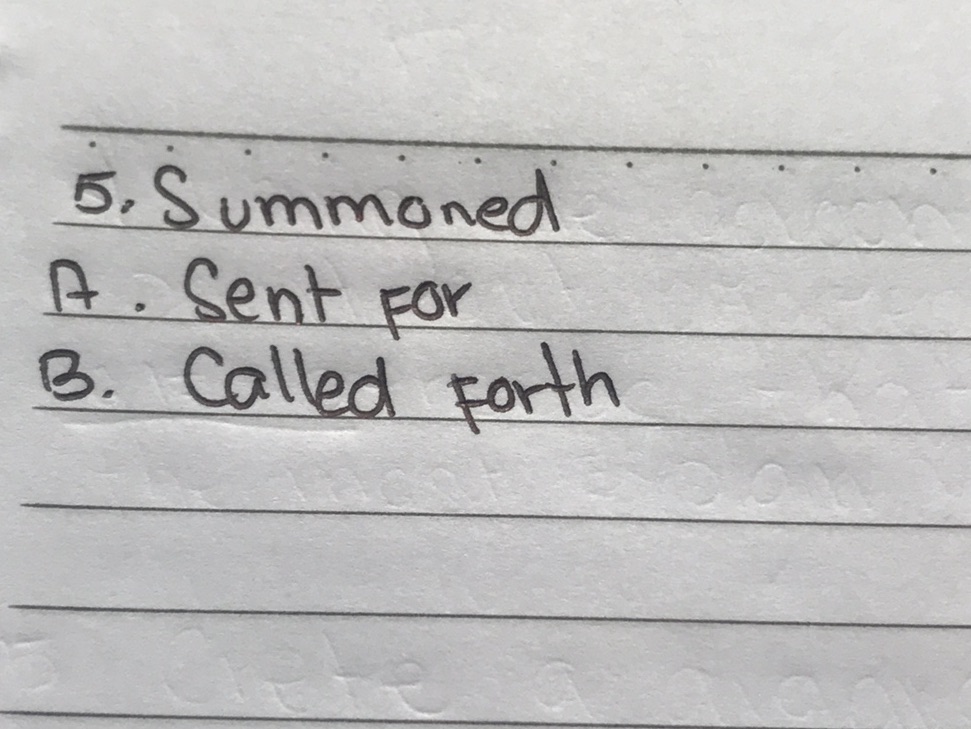 5. Summoned
A. Sent For
B. Called Forth